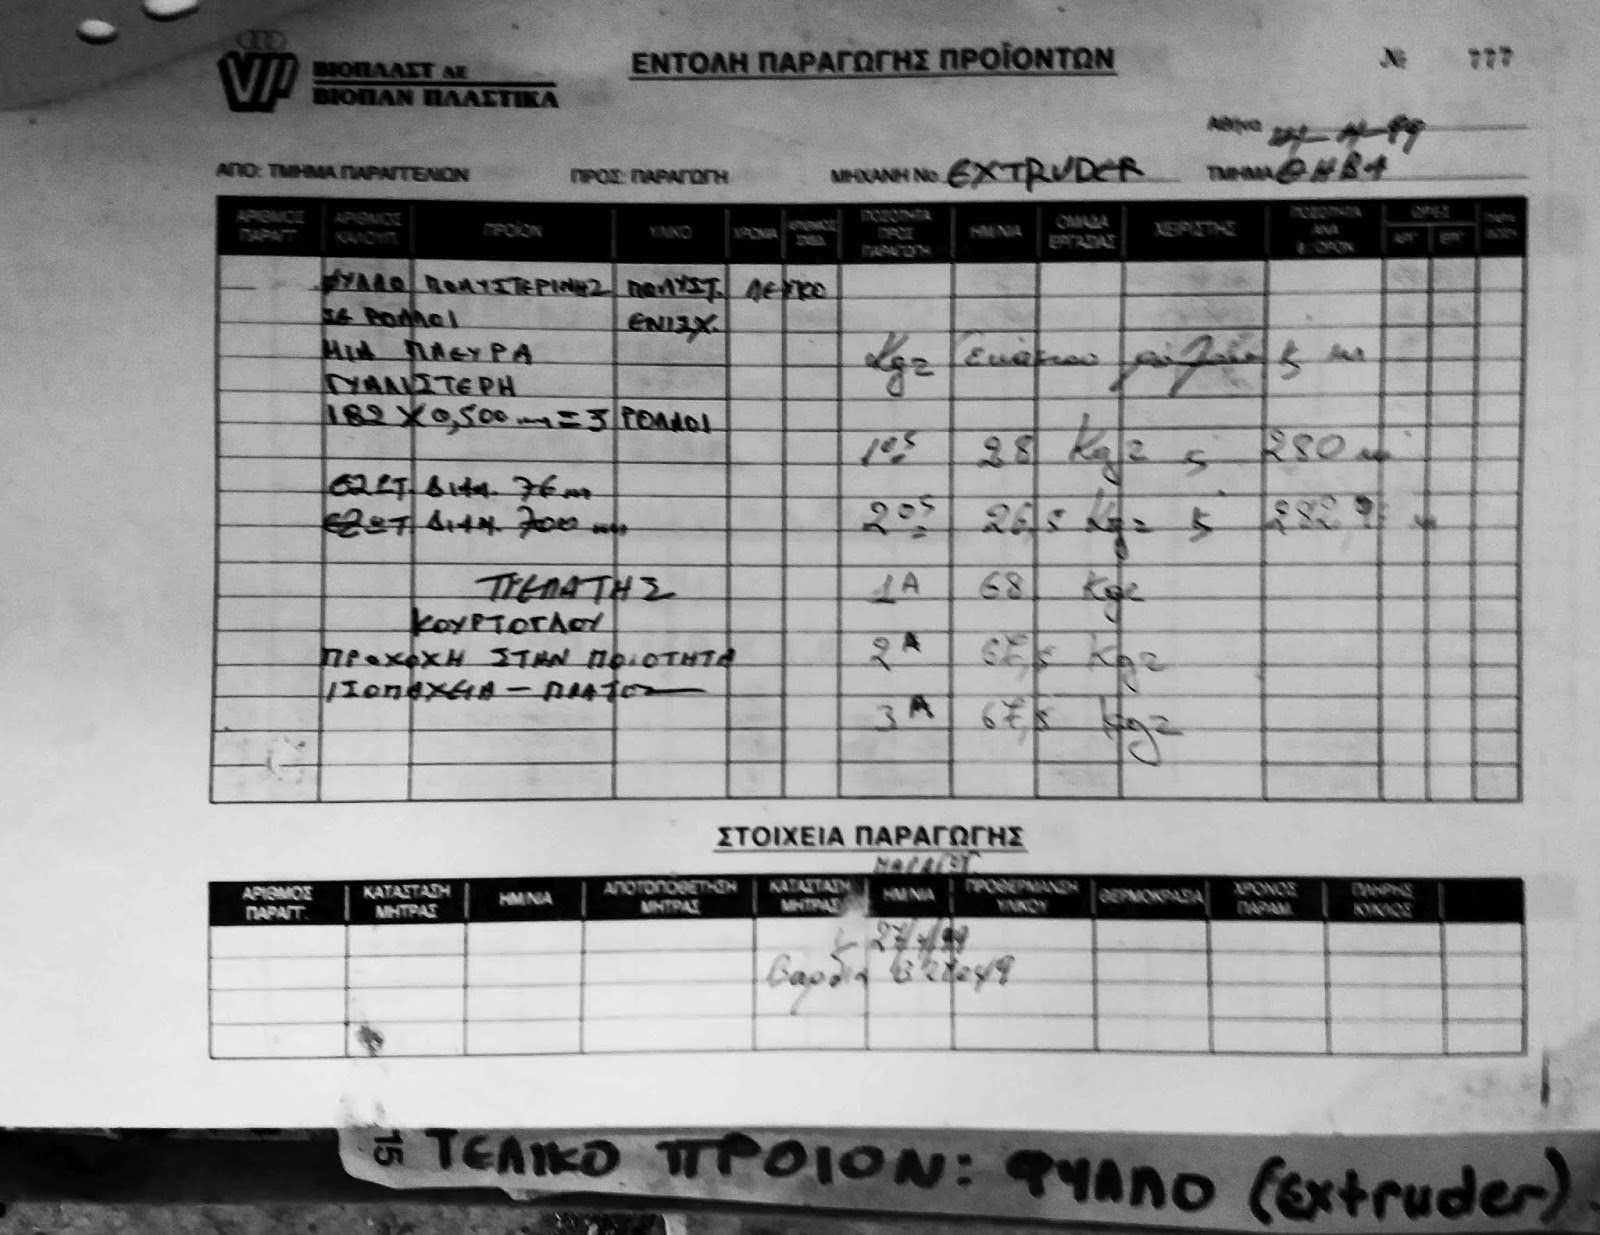 ΒΙΟΠΛΑΣΤ ΑΕ
ΒΙΟΠΑΝ ΠΛΑΣΤΙΚΑ
ΕΝΤΟΛΗ ΠΑΡΑΓΩΓΗΣ ΠΡΟΪΟΝΤΩΝ
№ 777
Αθήνα
ΑΠΟ: ΤΜΗΜΑ ΠΑΡΑΓΓΕΛΙΩΝ ΠΡΟΣ: ΠΑΡΑΓΩΓΗ ΜΗΧΑΝΗ Νο EXTRUDER ΤΜΗΜΑ ΘΗΒΑ
ΑΡΙΘΜΟΣ ΠΑΡΑΓΓ. ΑΡΙΘΜΟΣ ΚΑΛΟΥΠ. ΠΡΟΪΟΝ ΥΛΙΚΟ ΧΡΩΜΑ ΑΡΙΘΜΟΣ ΣΧΕΔ. ΠΟΣΟΤΗΤΑ ΠΡΟΣ ΠΑΡΑΓΩΓΗ ΗΜ/ΝΙΑ ΟΜΑΔΑ ΕΡΓΑΣΙΑΣ ΧΕΙΡΙΣΤΗΣ ΠΟΣΟΤΗΤΑ ΑΝΑ 8/ΩΡΟΝ ΩΡΕΣ
ΦΥΛΛΟ ΠΟΛΥΣΤΕΡΙΝΗΣ ΠΟΛΥΣΤ. ΛΕΥΚΟ
ΣΕ ΡΟΛΛΟΙ ΕΝΙΣΧ.
ΜΙΑ ΠΛΕΥΡΑ Kgz 5 m
ΓΥΑΛΙΣΤΕΡΗ
182 Χ 0,500 m = 3 ΡΟΛΛΟΙ
1ος 28 Kgz 5 280 m
ΕΣΩΤ. ΔΙΑΜ. 76 m
ΕΞΩΤ. ΔΙΑΜ. 700 m 2ος 26,5 Kgz 5
ΠΕΛΑΤΗΣ 1Α 68 Kgz
ΚΟΥΡΤΟΓΛΟΥ
ΠΡΟΣΟΧΗ ΣΤΗΝ ΠΟΙΟΤΗΤΑ 2Α 67,5 Kgz
ΙΣΟΠΑΧΕΙΑ - ΠΛΑΤΟΣ
3Α 67,5 Kgz
ΣΤΟΙΧΕΙΑ ΠΑΡΑΓΩΓΗΣ
ΑΡΙΘΜΟΣ ΠΑΡΑΓΓ. ΚΑΤΑΣΤΑΣΗ ΜΗΤΡΑΣ ΗΜ/ΝΙΑ ΑΠΟΤΟΠΟΘΕΤΗΣΗ ΜΗΤΡΑΣ ΚΑΤΑΣΤΑΣΗ ΜΗΤΡΑΣ ΗΜ/ΝΙΑ ΠΡΟΘΕΡΜΑΝΣΗ ΥΛΙΚΟΥ ΘΕΡΜΟΚΡΑΣΙΑ ΧΡΟΝΟΣ ΠΑΡΑΜ. ΠΛΗΡΗΣ ΚΥΚΛΟΣ
27/4/99
Βαρδια
15 ΤΕΛΙΚΟ ΠΡΟΙΟΝ: ΦΥΛΛΟ (Extruder).